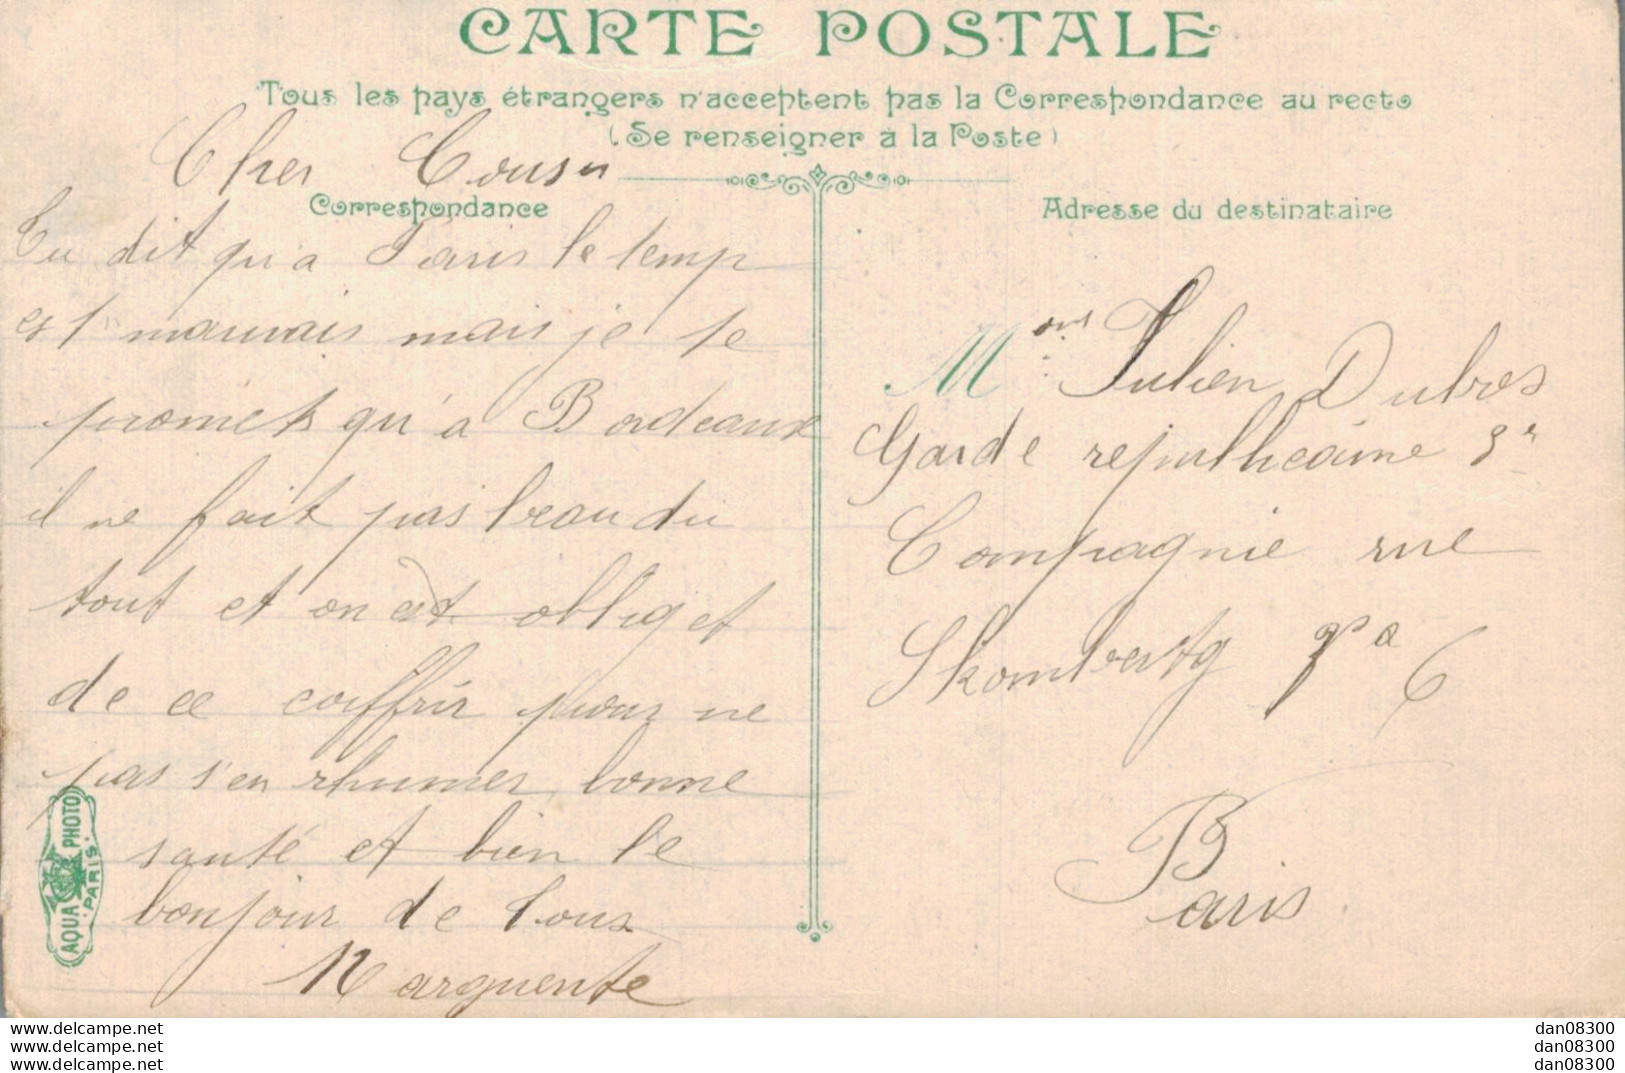 CARTE POSTALE
Tous les pays étrangers n'acceptent pas la Correspondance au recto
(Se renseigner à la Poste)
Cher Cousin
Correspondance
Tu dit qu'a Paris le temp
est mauvais mais je te
promets qu'a Bordeaux
il ne fait pas beau du
tout et on est obliget
de ce coiffrir pour ne
pas s'en rhumer bonne
santé et bien le
bonjour de tous
Marguerite
Adresse du destinataire
M our Julien Dubos
Garde republicaine 3e
Compagnie rue
Skombertg
6
Paris
AQUA PHOTO
PARIS
www.delcampe.net
www.delcampe.net
www.delcampe.net
dan08300
dan08300
dan08300